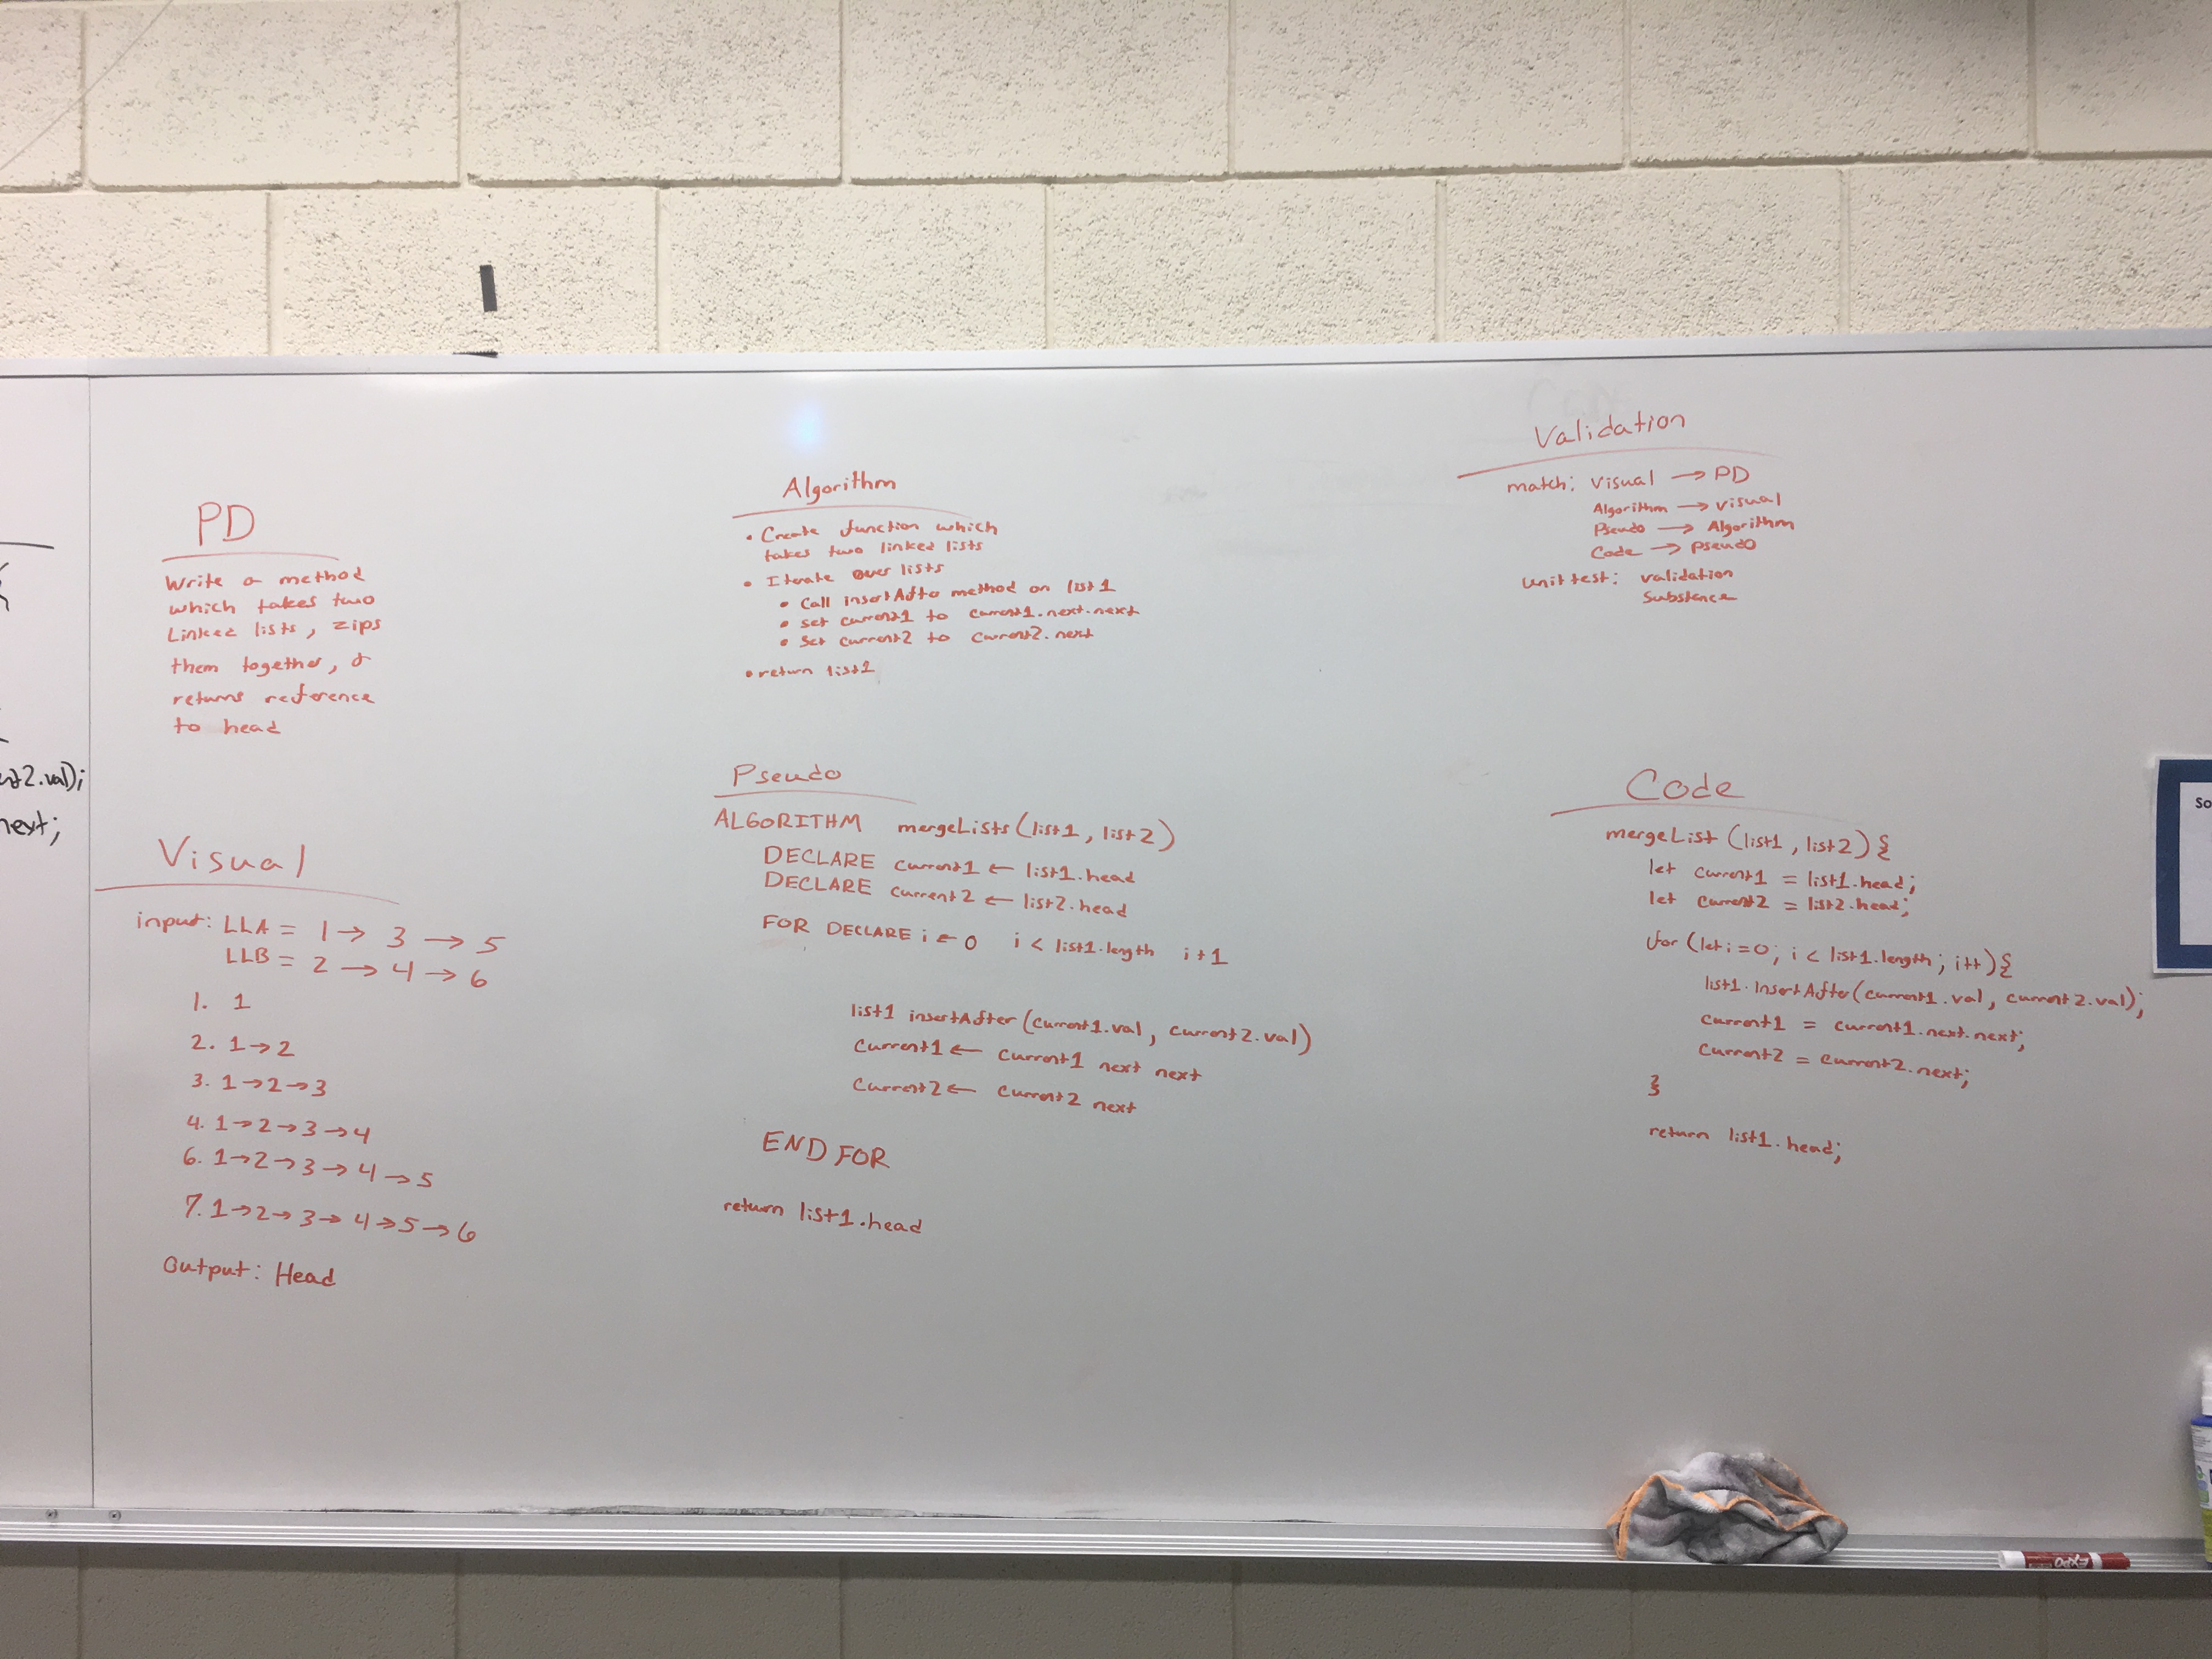 PD
Write a method
which takes two
Linked lists, zips
them together, &
returns reference
to head
Visual
input: LLA = 1 → 3 → 5
LLB = 2 → 4 → 6
1. 1
2. 1→2
3. 1→2→3
4. 1→2→3→4
6. 1→2→3→4→5
7. 1→2→3→4→5→6
Output: Head
Algorithm
• Create function which
takes two linked lists
• Iterate over lists
• Call insertAfter method on list1
• set current1 to current1.next.next
• Set current2 to current2.next
• return list1
Pseudo
ALGORITHM mergeLists(list1, list2)
DECLARE current1 ← list1.head
DECLARE current2 ← list2.head
FOR DECLARE i ← 0 i < list1.length i+1
list1 insertAfter(current1.val, current2.val)
current1 ← current1 next next
current2 ← current2 next
END FOR
return list1.head
Validation
match: Visual → PD
Algorithm → visual
Pseudo → Algorithm
Code → Pseudo
unit test: validation
Substance
Code
mergeList (list1, list2) {
let current1 = list1.head;
let current2 = list2.head;
for (let i=0; i < list1.length; i++) {
list1.insertAfter(current1.val, current2.val);
current1 = current1.next.next;
current2 = current2.next;
}
return list1.head;
2.val);
next;
So
EXPO